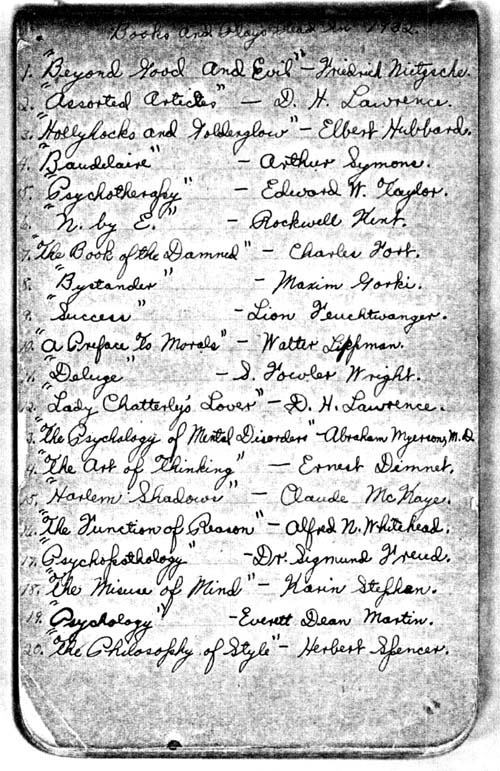 Books And Plays Read In 1932.
1. "Beyond Good And Evil" - Friedrich Nietzsche.
2. "Assorted Articles" - D. H. Lawrence.
3. "Hollyhocks and Goldenglow" - Elbert Hubbard.
4. "Baudelaire" - Arthur Symons.
5. "Psychotherapy" - Edward W. Taylor.
6. "N. by E." - Rockwell Kent.
7. "The Book of the Damned" - Charles Fort.
8. "Bystander" - Maxim Gorki.
9. "Success" - Lion Feuchtwanger.
10. "A Preface To Morals" - Walter Lippman.
11. "Deluge" - S. Fowler Wright.
12. "Lady Chatterley's Lover" - D. H. Lawrence.
13. "The Psychology of Mental Disorders" - Abraham Myerson, M.D.
14. "The Art of Thinking" - Ernest Dimnet.
15. "Harlem Shadows" - Claude McKaye.
16. "The Function of Reason" - Alfred N. Whitehead.
17. "Psychopathology" - Dr. Sigmund Freud.
18. "The Misuse of Mind" - Karin Stephan.
19. "Psychology" - Everett Dean Martin.
20. "The Philosophy of Style" - Herbert Spencer.